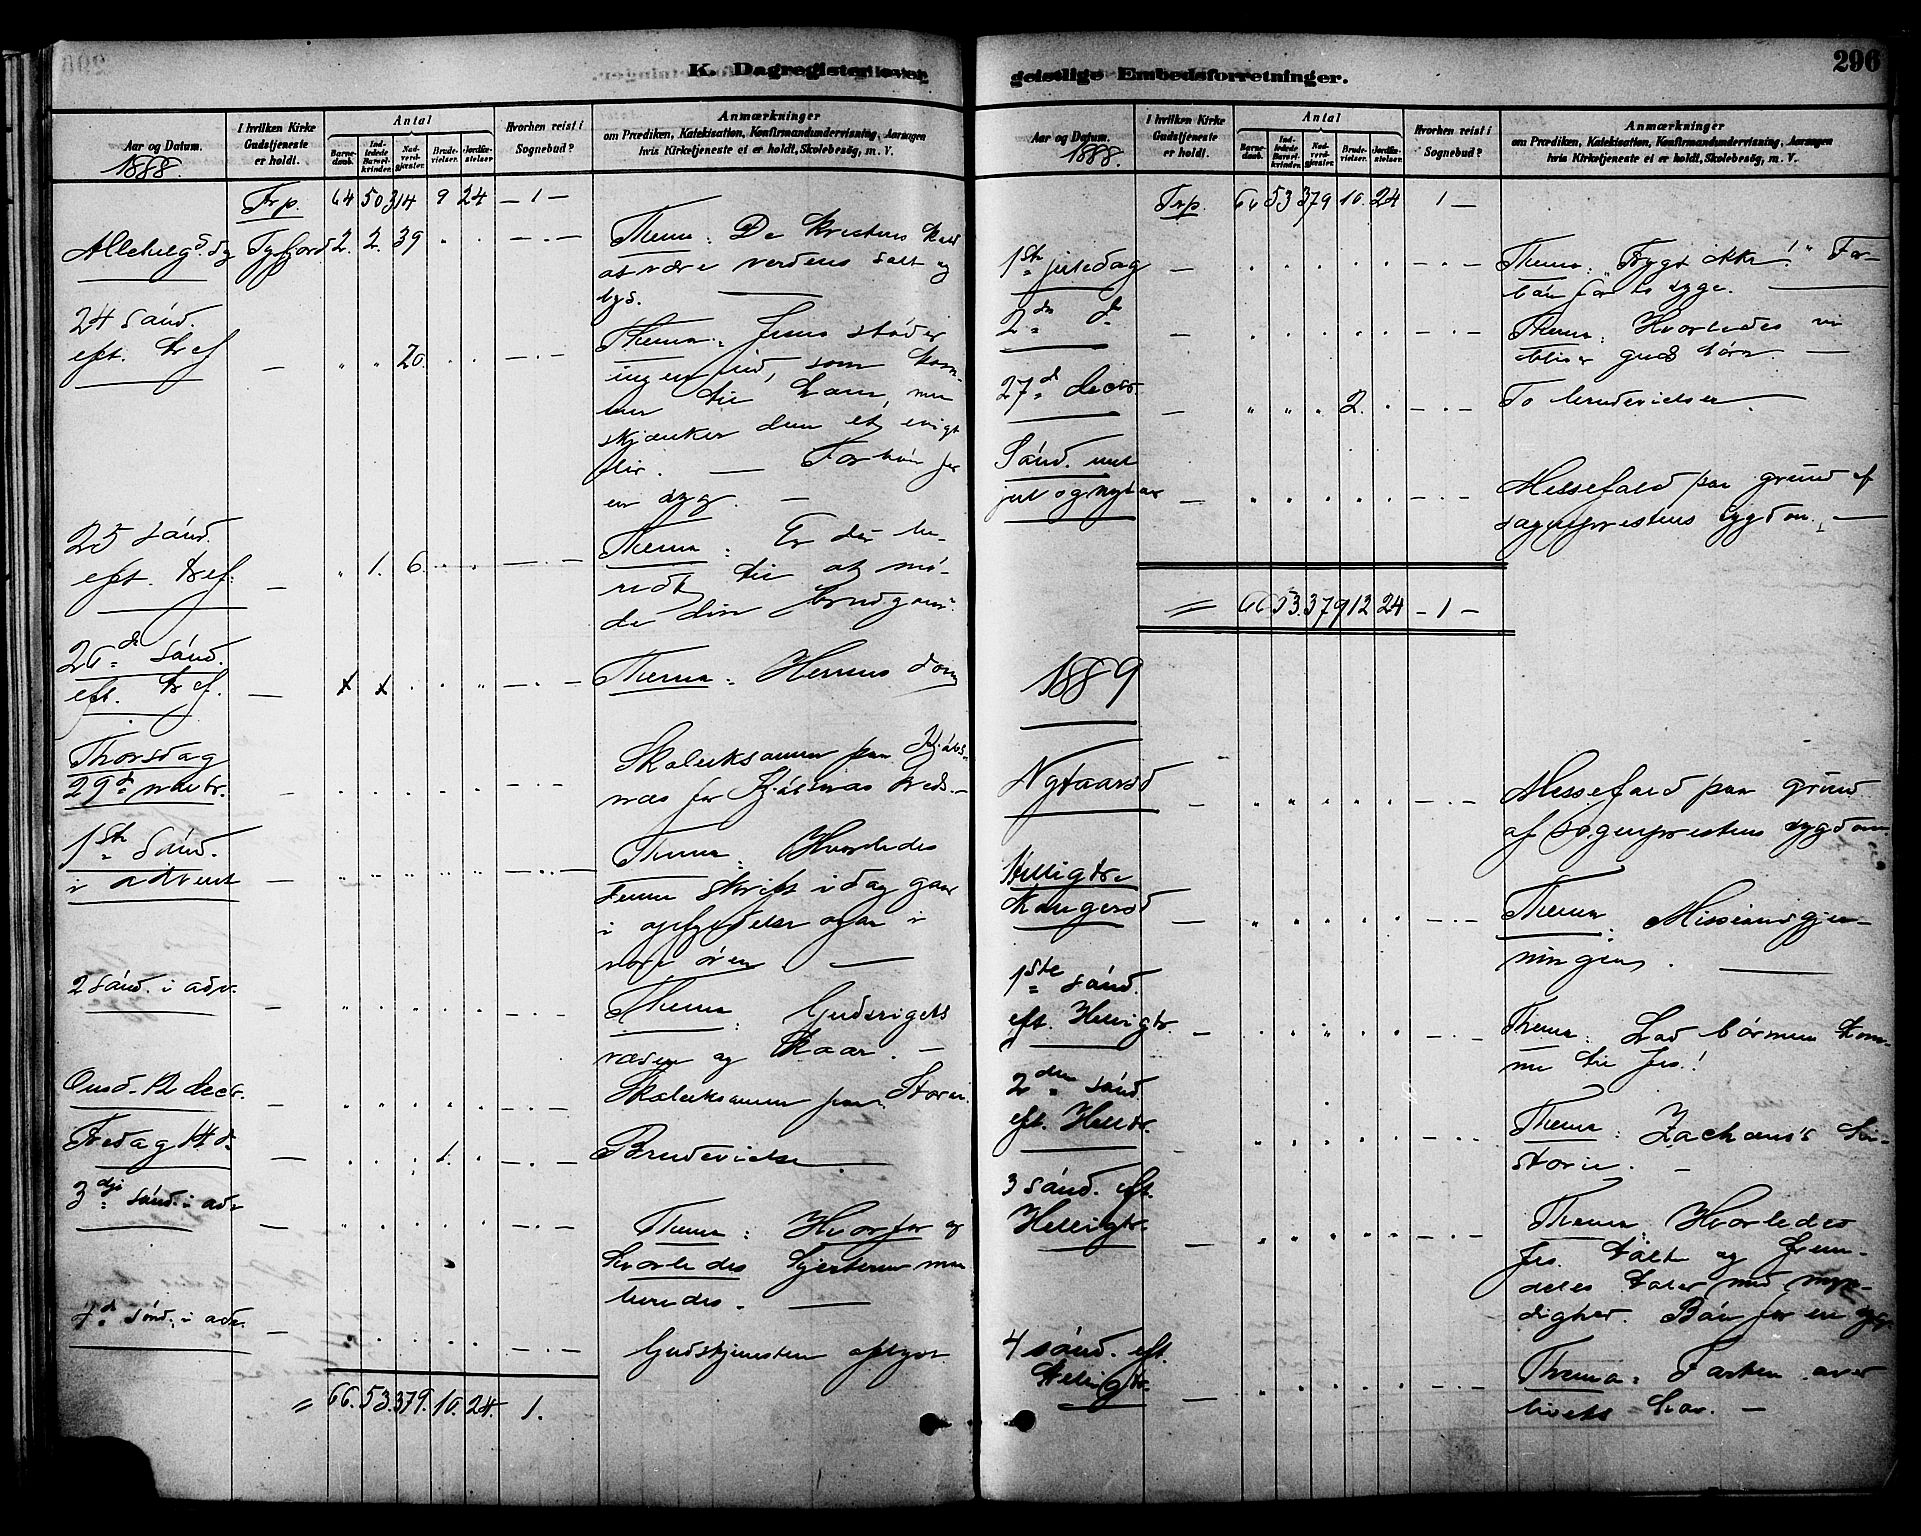 K. Dagregister over
Aar og Datum.
1888
I hvilken Kirke Gudstjeneste er holdt.
Antal
Barnedaab.
Indledede Barselkvinder.
Nadverdgjester.
Brudevielser.
Jordfæstelser
Hvorhen reist i Sognebud?
Anmærkninger
om Prædiken, Katekisation, Konfirmandundervisning, Aarsagen
hvis Kirketjeneste ei er holdt, Skolebesøg, m. V.
Trp. 64 50 314 9 24 — 1 —
Allehelgsdg Tysfjord 2. 2. 39 Thema: De kristens kald
at være verdens salt og
lys.
24 sønd.
eft. tref — " " 20. Thema: Jesus støder
ingen ud, som kom-
mer til ham, men
skjænker dem et evigt
liv. — Forbøn for
en syg. —
25 sønd.
eft. tref. — " 1. 6. Thema: Er du be-
redt til at mø-
de din brudgom?
26de sønd.
eft. tref. — x x Thema: Herrens dom
Thorsdag
29d novbr. Skoleeksamen paa
næs for kreds. —
1ste sønd.
i advent — Thema: Hvorledes
denne skrift idag gaar
i opfyldelse ogsaa i
vore øren. —
2 sønd. i adv. — Thema: Gudsrigets
væden og kaar. —
Onsd. 12 decr. Skoleeksamen paa Storn.
Fredag 14 d. 1. Brudevielse.
3dje sønd. i adv — Thema: Hvorfor og
hvorledes hjerterne maa
beredes. —
4d sønd. i adv. — Gudstjenesten aflyst.
= 66. 53. 379. 10. 24. 1.
geistlige Embedsforretninger.
296
Aar og Datum.
1888.
I hvilken Kirke Gudstjeneste er holdt.
Antal
Barnedaab.
Indledede Barselkvinder.
Nadverdgjester.
Brudevielser.
Jordfæstelser
Hvorhen reist i Sognebud?
Anmærkninger
om Prædiken, Katekisation, Konfirmandundervisning, Aarsagen
hvis Kirketjeneste ei er holdt, Skolebesøg, m. V.
Trp. 66 53 379 10. 24 1 —
1ste juledag — Thema: "Frygt ikke!" For-
bøn for to syge. —
2den do — Thema: Hvorledes vi
bliver guds børn. —
27d decbr. — " " 2. To brudevielser. —
Sønd. mel
jul og nytaar — Messefald paa grund af
sognepresten sygdom. —
= 66 53. 379 12 24 — 1 —
1889
Nytaarsd — Messefald paa grund
af sognepresten sygdom.
Helligtre
Kongersd — Thema: Missionsgjer-
ningen. —
1ste sønd.
eft. Helligtr. — Thema: Lad børnene kom-
me til Jes.!
2den sønd.
eft. Helltr. Thema: Zachæus's hi-
storie. —
3 sønd. eft.
Helligtr. — Thema: Hvorledes
Jes. talte og frem-
deles taler med myn-
dighed. Bøn for en syg.
4 sønd. eft.
Helligtr. — Thema: Farten over
livets hav. —